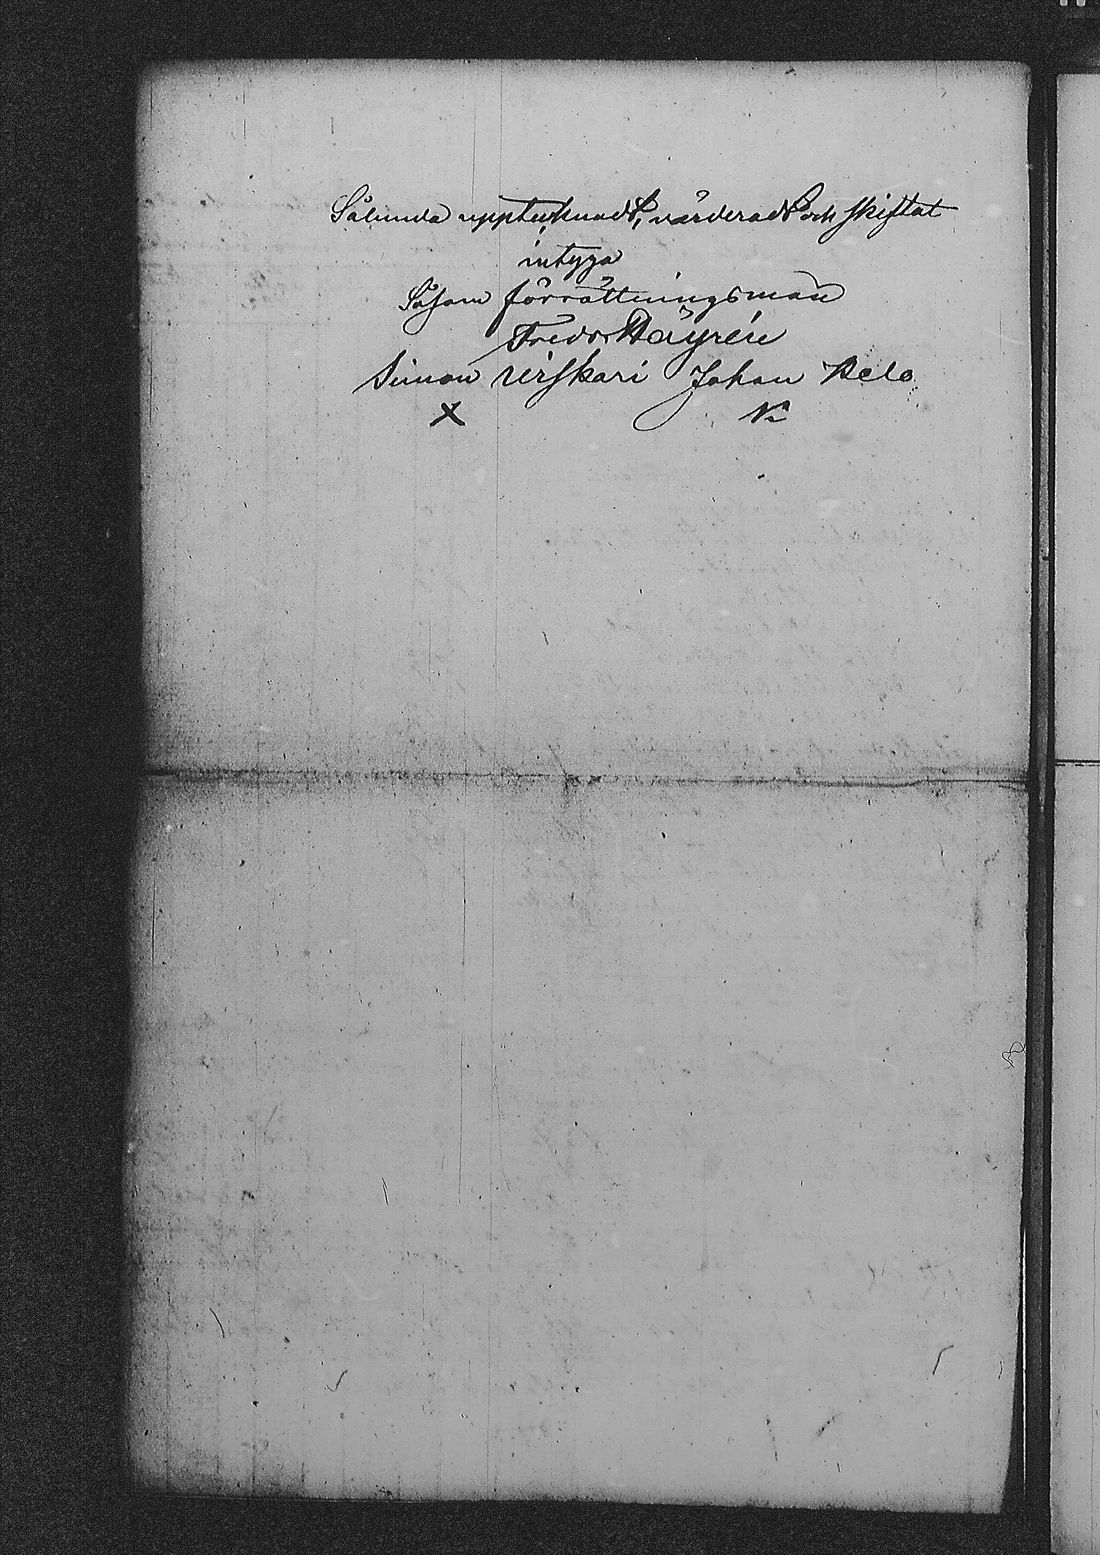 Sålunda uppteknadt, värderadt och skiftat
intyga
Såsom förrättningsmän
Fredr Häyrén
Simon Virskari Johan Pelo
X